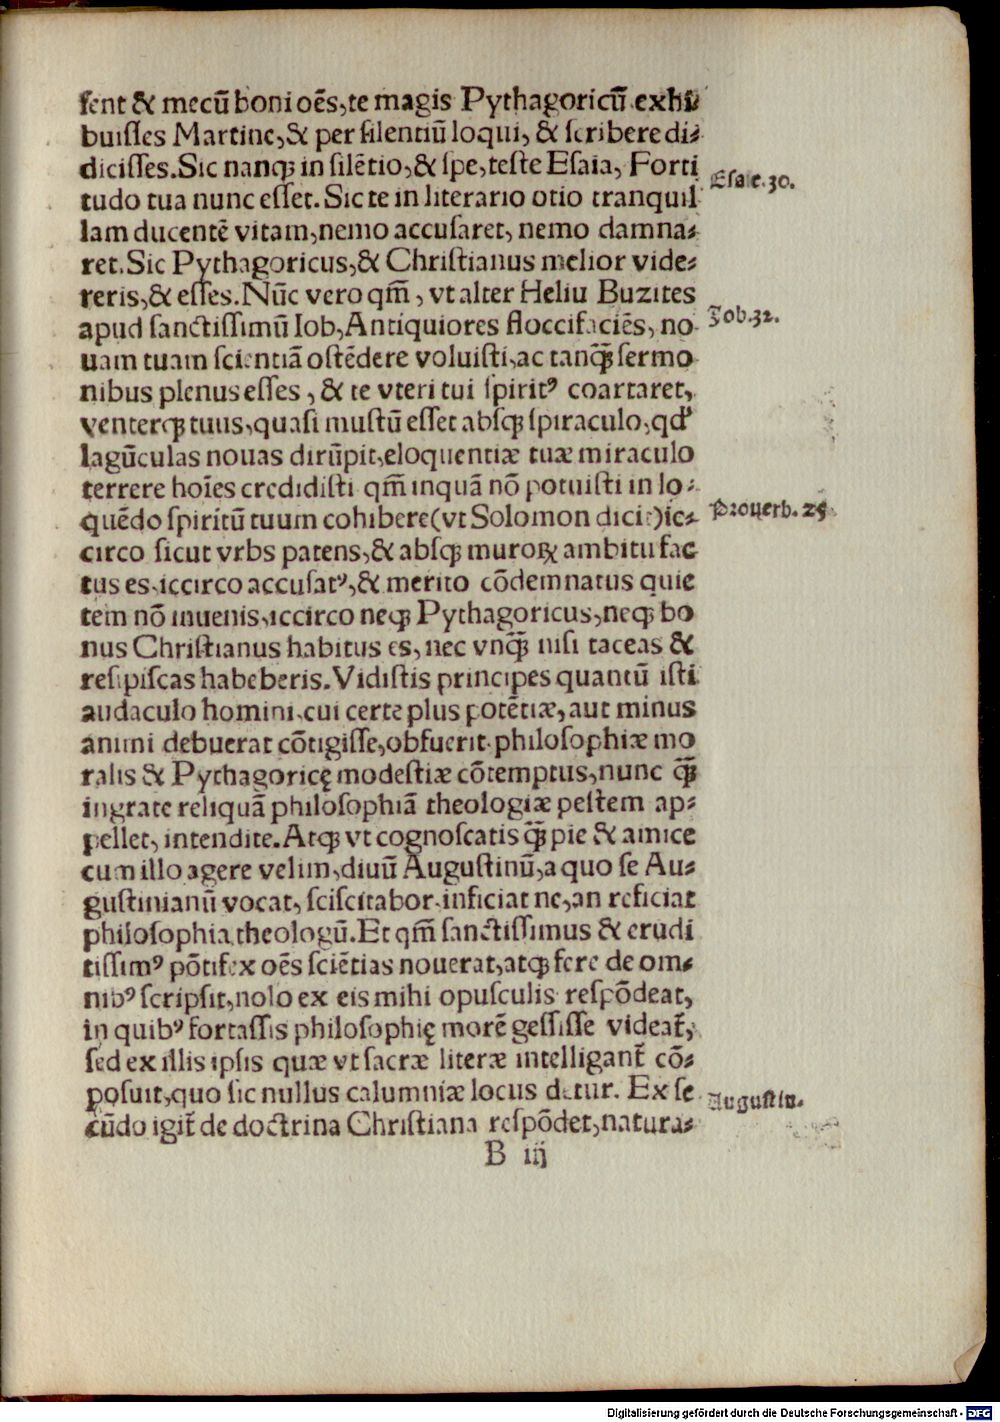 ſent & mecū boni oēs, te magis Pythagoricū exhi
buiſſes Martine, & per ſilentiū loqui, & ſcribere di⸗
diciſſes. Sic nanqꝫ in ſilētio, & ſpe, teſte Eſaia, Forti
Eſaie. 30.
tudo tua nunc eſſet. Sic te in literario otio tranquil
lam ducentē vitam, nemo accuſaret, nemo damna⸗
ret. Sic Pythagoricus, & Chriſtianus melior vide⸗
reris, & eſſes. Nūc vero qm̄, vt alter Heliu Buzites
apud ſanctiſſimū Iob, Antiquiores floccifaciēs, no
Job. 32.
uam tuam ſcientiā oſtēdere voluiſti, ac tanqꝫ̄ ſermo
nibus plenus eſſes, & te vteri tui ſpiritꝰ coartaret,
venterqꝫ tuus, quaſi muſtū eſſet abſqꝫ ſpiraculo, qd'
lagūculas nouas dirūpit, eloquentiæ tuæ miraculo
terrere hoīes credidiſti qm̄ inquā nō potuiſti in lo⸗
quēdo ſpiritū tuum cohibere (vt Solomon dicit) ic⸗
Prouerb. 25
circo ſicut vrbs patens, & abſqꝫ muroꝝ ambitu fac
tus es, iccirco accuſatꝰ, & merito cōdemnatus quie
tem nō inuenis, iccirco neqꝫ Pythagoricus, neqꝫ bo
nus Chriſtianus habitus es, nec vnqꝫ̄ niſi taceas &
reſipiſcas habeberis. Vidiſtis principes quantū iſti
audaculo homini, cui certe plus potētiæ, aut minus
animi debuerat cōtigiſſe, obfuerit philoſophiæ mo
ralis & Pythagoricę modeſtiæ cōtemptus, nunc qꝫ̄
ingrate reliquā philoſophiā theologiæ peſtem ap⸗
pellet, intendite. Atqꝫ vt cognoſcatis qꝫ̄ pie & amice
cum illo agere velim, diuū Auguſtinū, a quo ſe Au⸗
guſtinianū vocat, ſciſcitabor, inficiat ne, an reficiat
philoſophia theologū. Et qm̄ ſanctiſſimus & erudi
tiſſimꝰ pōtifex oēs ſciētias nouerat, atqꝫ fere de om⸗
nibꝰ ſcripſit, nolo ex eis mihi opuſculis reſpōdeat,
in quibꝰ fortaſſis philoſophię morē geſſiſſe videat̄,
ſed ex illis ipſis quæ vt ſacræ literæ intelligant̄ cō⸗
poſuit, quo ſic nullus calumniæ locus detur. Ex ſe
Auguſtin.
cūdo igit̄ de doctrina Chriſtiana reſpōdet, natura⸗
B iij
Digitalisierung gefördert durch die Deutsche Forschungsgemeinschaft - DFG